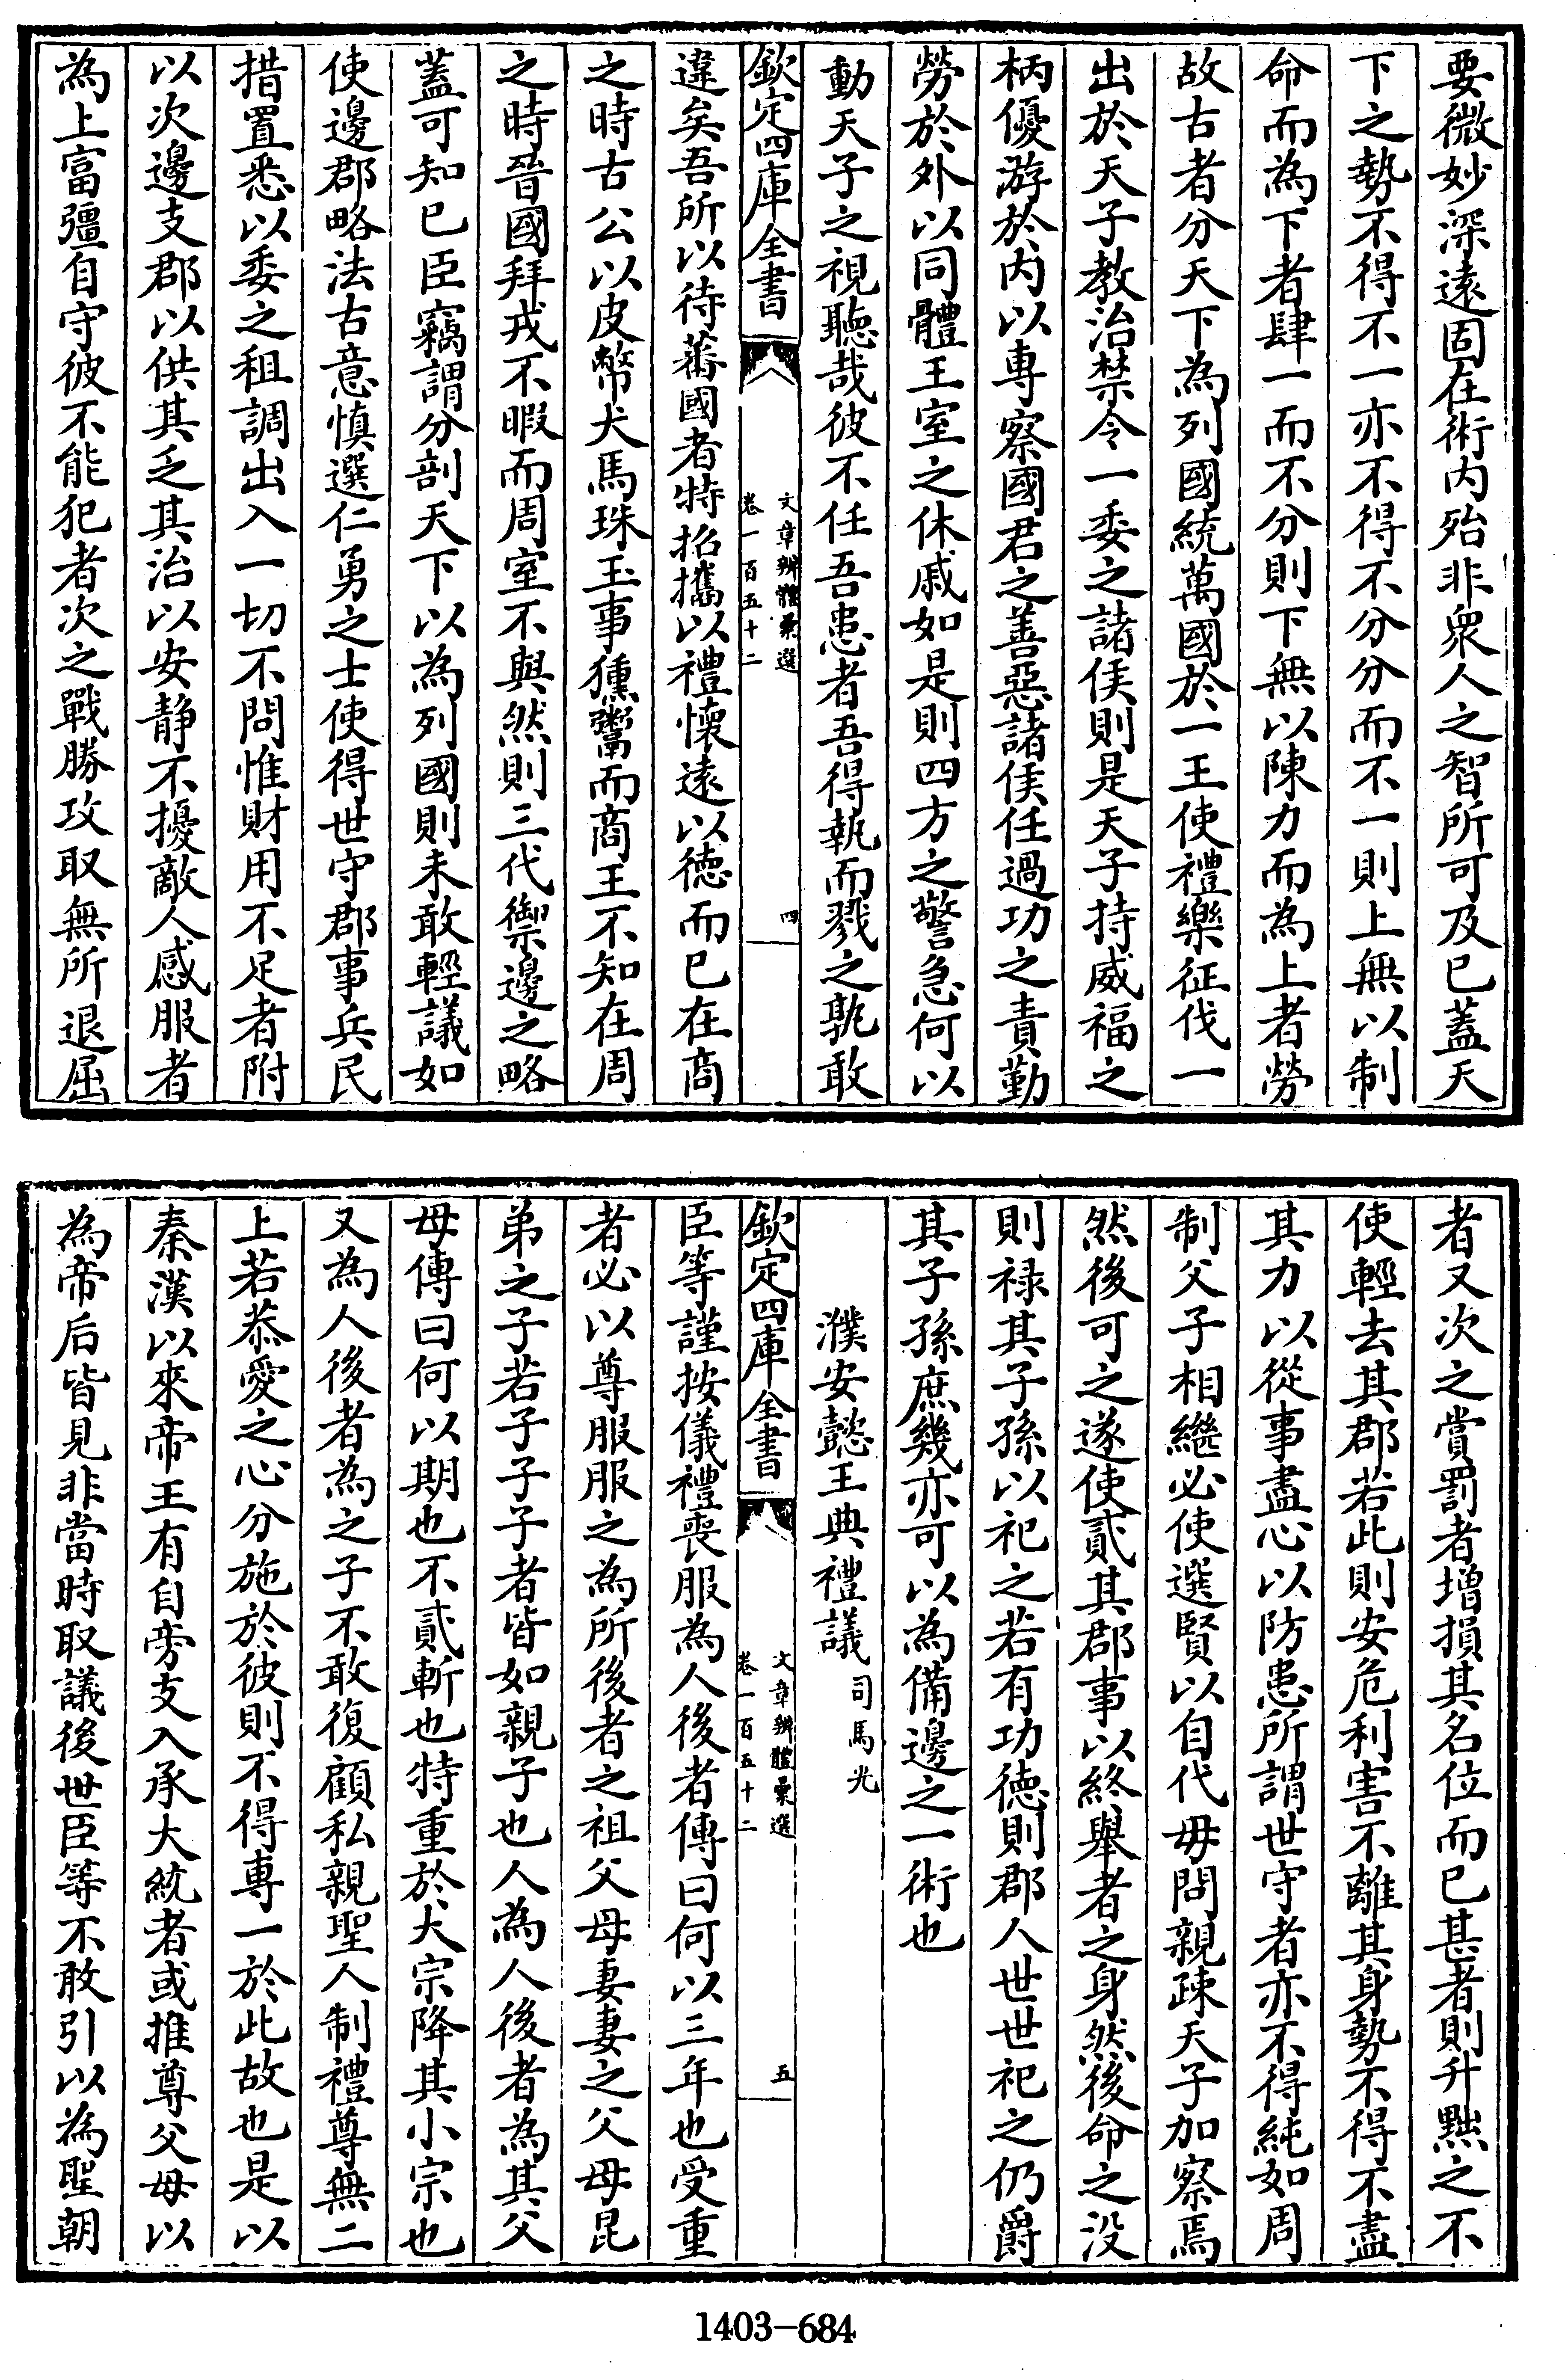 要微妙深遠固在術内殆非衆人之智所可及已蓋天
下之勢不得不一亦不得不分分而不一則上無以制
命而為下者肆一而不分則下無以陳力而為上者勞
故古者分天下為列國統萬國於一王使禮樂征伐一
出於天子教治禁令一委之諸侯則是天子持威福之
柄優游於内以專察國君之善惡諸侯任過功之責勤
勞於外以同體王室之休戚如是則四方之警急何以
動天子之視聽哉彼不任吾患者吾得執而戮之孰敢
欽定四庫全書
文章辨體彙選
卷一百五十二
四
違矣吾所以待蕃國者特招攜以禮懷遠以德而已在商
之時古公以皮幣犬馬珠玉事獯鬻而商王不知在周
之時晉國拜戎不暇而周室不與然則三代禦邊之略
蓋可知已臣竊謂分剖天下以為列國則未敢輕議如
使邊郡略法古意慎選仁勇之士使得世守郡事兵民
措置悉以委之租調出入一切不問惟財用不足者附
以次邊支郡以供其乏其治以安静不擾敵人感服者
為上富彊自守彼不能犯者次之戰勝攻取無所退屈
者又次之賞罰者增損其名位而已甚者則升黜之不
使輕去其郡若此則安危利害不離其身勢不得不盡
其力以從事盡心以防患所謂世守者亦不得純如周
制父子相繼必使選賢以自代毋問親疎天子加察焉
然後可之遂使貳其郡事以終舉者之身然後命之没
則禄其子孫以祀之若有功德則郡人世世祀之仍爵
其子孫庶幾亦可以為備邊之一術也
濮安懿王典禮議 司馬光
欽定四庫全書
文章辨體彙選
卷一百五十二
五
臣等謹按儀禮喪服為人後者傳曰何以三年也受重
者必以尊服服之為所後者之祖父母妻妻之父母昆
弟之子若子子子者皆如親子也人為人後者為其父
母傳曰何以期也不貳斬也特重於大宗降其小宗也
又為人後者為之子不敢復顧私親聖人制禮尊無二
上若恭愛之心分施於彼則不得專一於此故也是以
秦漢以來帝王有自旁支入承大統者或推尊父母以
為帝后皆見非當時取議後世臣等不敢引以為聖朝
1403-684